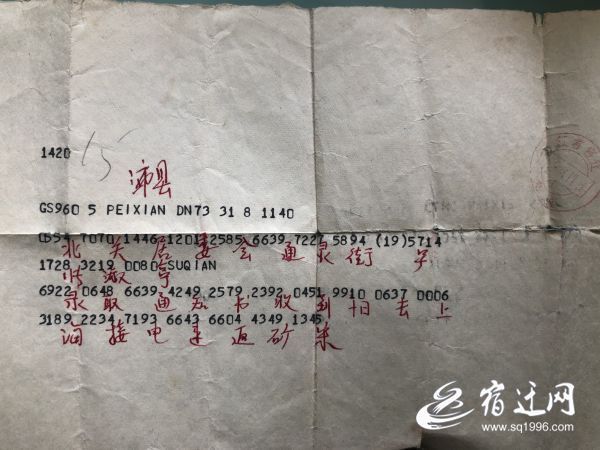 1420 15
沛县
GS960 5 PEIXIAN DN73 31 8 1140
0554 7070 1446 1201 2585 6639 7227 5894 (19)5714
北 关 居 委 会 通 街
1728 3219 0080 SUQIAN
淑 亭
6922 0648 6639 4249 2579 2392 0451 9910 0637 0006
录 取 通 知 书 收 到 10日 去 上
3189 2234 7193 6643 6604 4349 1345
海 接 电 速 返 砂
宿迁网
www.sq1996.com